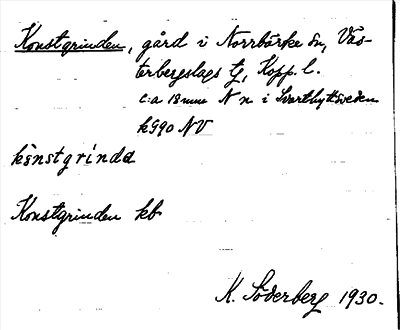 Konstgrinden, gård i Norrbärke sn, Väs-
terbergslags tg, Kopp. l.
c:a 18 mm N n i Svarthyttsveden
kg90 NV
kånstgrindα
Konstgrinden kb
K. Söderberg 1930.